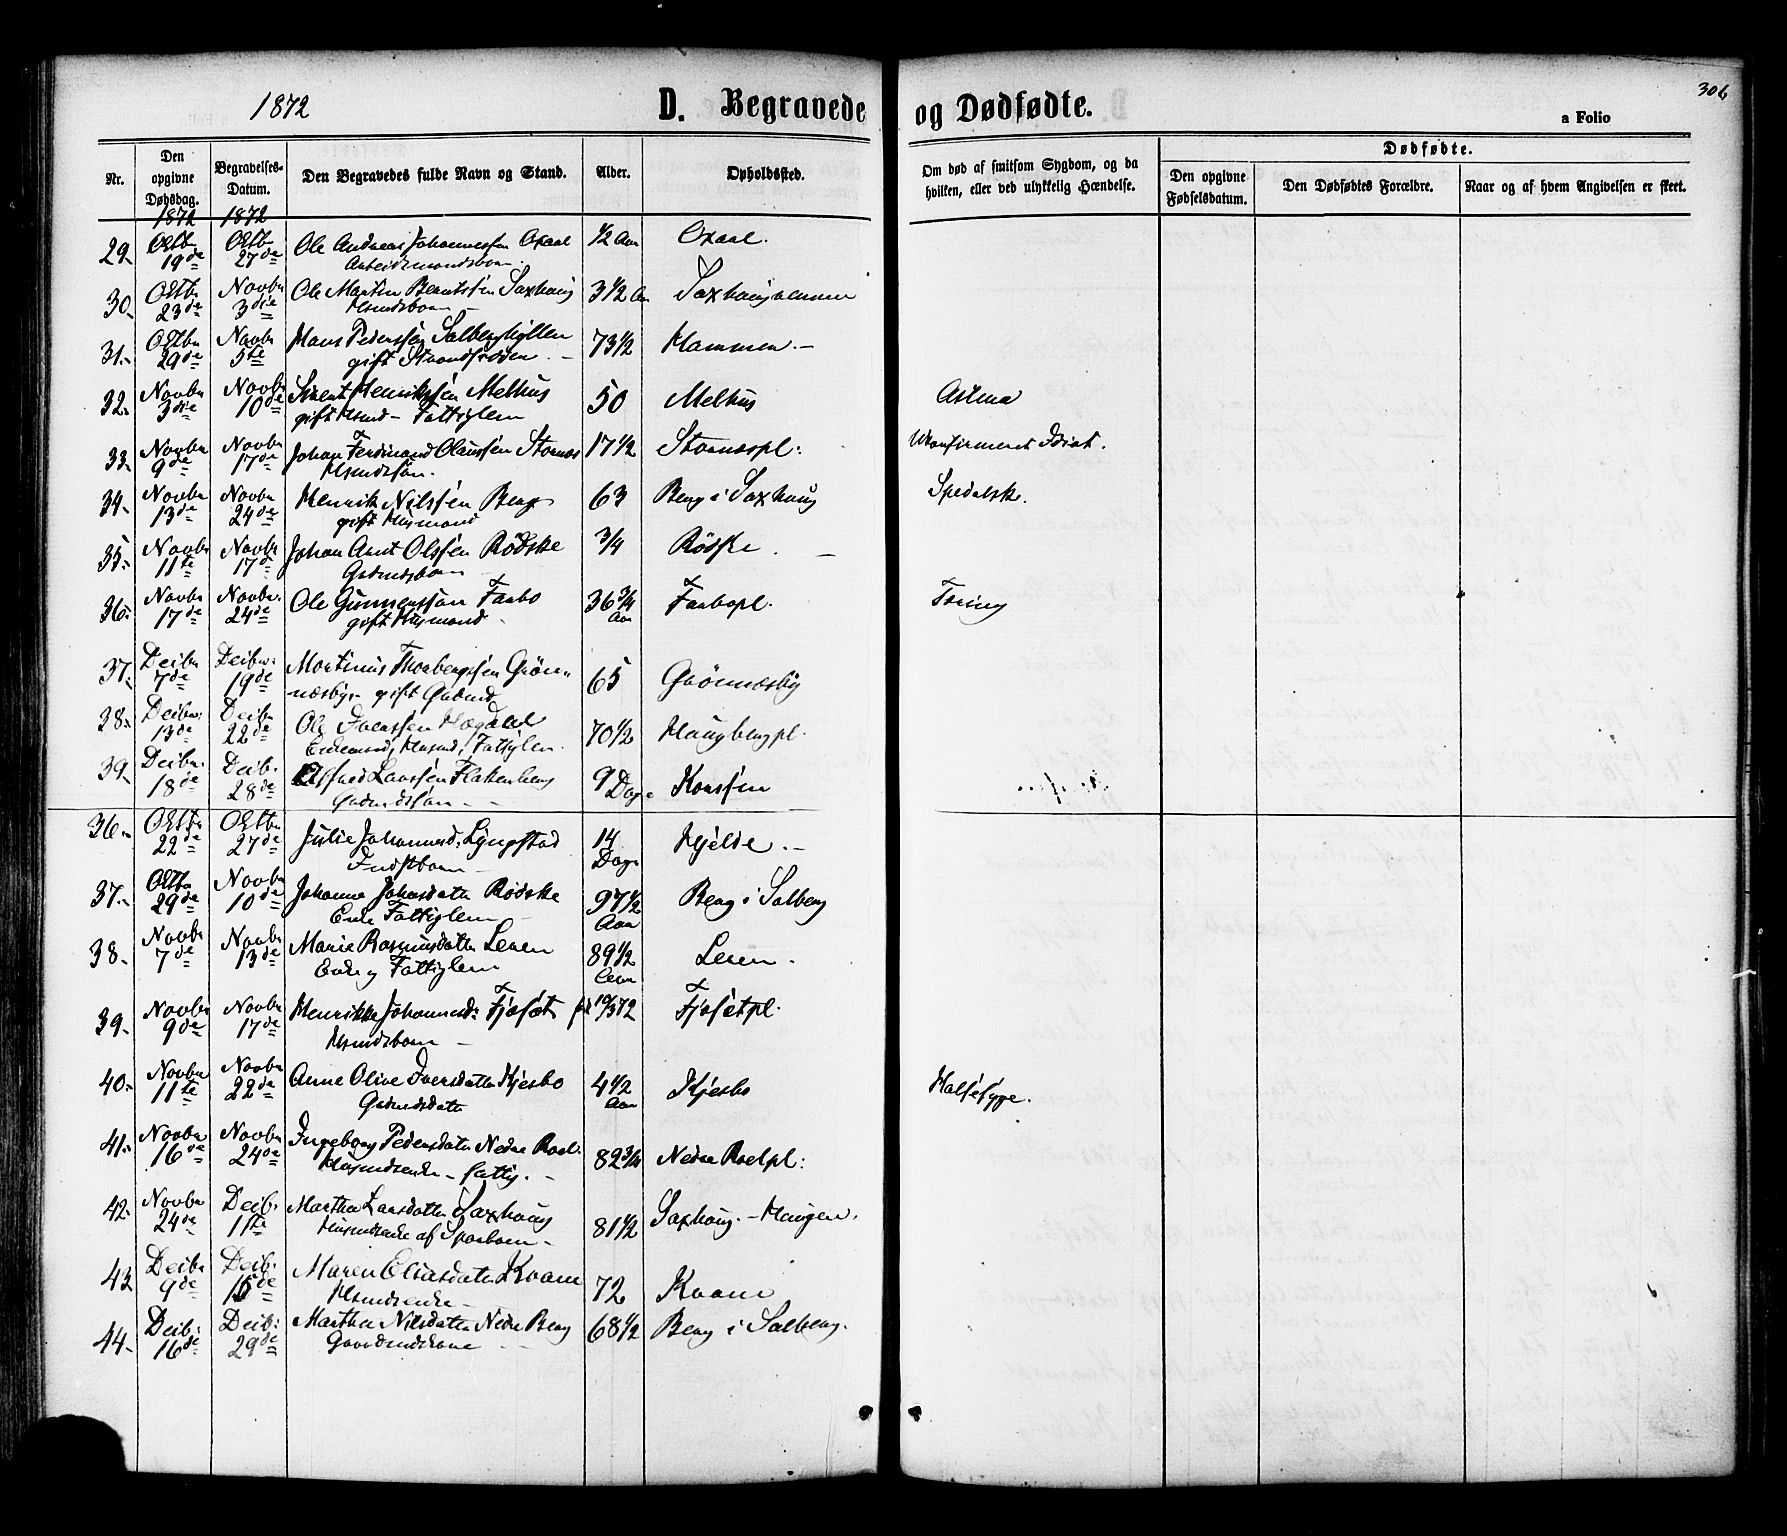 1872 D. Begravede og Dødfødte. 306
a Folio
Nr. Den opgivne Dødsdag. Begravelses-Datum. Den Begravedes fulde Navn og Stand. Alder. Opholdssted. Om død af smitsom Sygdom, og da hvilken, eller ved ulykkelig Hændelse. Dødfødte. Den opgivne Fødselsdatum. Den Dødfødtes Forældre. Naar og af hvem Angivelsen er skeet.
1872 1872
29. Octb. 19de Octb. 27de Ole Andreas Johannessen Oxaal 1/2 Aar Oxaal.
Arbeidsmandsbarn.
30. Octb. 23de Novbr 3die Ole Martin Berntsen Saxhaug 3 1/2 Aar
Hsmdsbarn
31. Octbr 29de Novbr 5te Hans Pedersen 73 1/2 Hammen.
gift
32. Novbr 3die Novbr 10de Henriksen Melhus 50 Melhus Astma
gift Hsmd - Fattiglem
33. Novbr 9de Novbr 17de Johan Ferdinand Olaussen Stornes 17 1/2 Stornespl: Ukonfirmeret Idiot.
Hsmdssøn.
34. Novbr 13de Novbr 24de Henrik Nilssen Berg 63 Berg i Saxhaug Spedalsk.
gift Husmand
35. Novbr 11te Novbr 17de Johan Arnt Olssen Rødske 3/4 Rødske.
Gdmdsbarn
36. Novbr 17de Novbr. 24de Ole Gunnerssen Faabo 36 3/4 Aar Faabopl. Tæring
gift Husmand
37. Decbr 7de Decbr. 19de Martinus Thorbergsen Grøn- 65 Grønnesby
nesby, gift Gdmd
38. Decbr. 13de Decbr 22de Ole Iverssen 70 1/2 Haugbergpl.
Enkemand, Husmd, Fattiglem.
39. Decbr. 18de Decb. 28de Larssen Flakenberg 9 Dage Korssen
Gdmdssøn
36. Octb. 22de Octbr 27de Julie Johannesd. Lyngstad 14 Dage Hjelde.
Indstbarn
37. Octbr 29de Novbr 10de Johanna Johnsdatter Rødske 97 1/2 Aar Berg i Salberg
Enke Fattiglem
38. Novbr 7de Novbr 13de Marie Rasmusdatter Leren 89 1/2 Aar Leren.
Enke og Fattiglem
39. Novbr 9de Novbr 17de Henrikke Johannesd. Fjæset 10/3 72 Fjæsetpl.
Hsmdsbarn
40. Novbr 11te Novbr 22de Anne Olive Iversdatter Kjesbo 4 1/2 Aar Kjesbo Halsesyge.
Gdmdsdatter
41. Novbr 16de Novbr 24de Ingeborg Pedersdatter Nedre Roel 82 3/4 Nedre Roelpl:
Husmdsenke - fattig.
42. Novbr 24de Decb. 1ste Martha Larsdatter Saxhaug 81 1/2 Saxhaug.-Haugen.
Husmdsenke af Sparboen
43 Decbr 9de Decb. 15de Maren Eliasdatter Kvam 72 Kvam
Hsmdsenke
44. Decb: 16de Decb: 29de Martha Nilsdatter Nedre Berg 68 1/2 Berg i Salberg.
Gaardmdskone